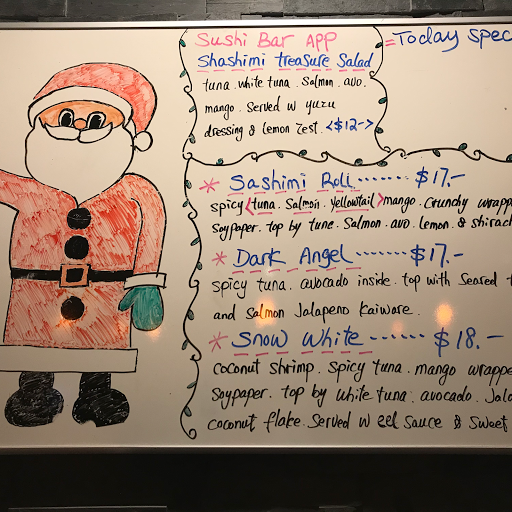 Sushi Bar APP
Shashimi treasure Salad
tuna. white tuna. Salmon. avo.
mango. Served w yuzu
dressing & Lemon Zest. <$12->
=Today Spec
* Sashimi Roll ....... $17.-
spicy <tuna. Salmon. yellowtail> mango. Crunchy wrapp
Soypaper. top by tuna. Salmon. avo. lemon. & shirach
* Dark Angel ....... $17.-
spicy tuna. avocado inside. top with Seared t
and Salmon Jalapeno Kaiware.
* Snow White ...... $18.-
coconut shrimp. Spicy tuna. mango wrappe
Soypaper. top by white tuna. avocado. Jala
coconut flake. Served w eel Sauce & Sweet